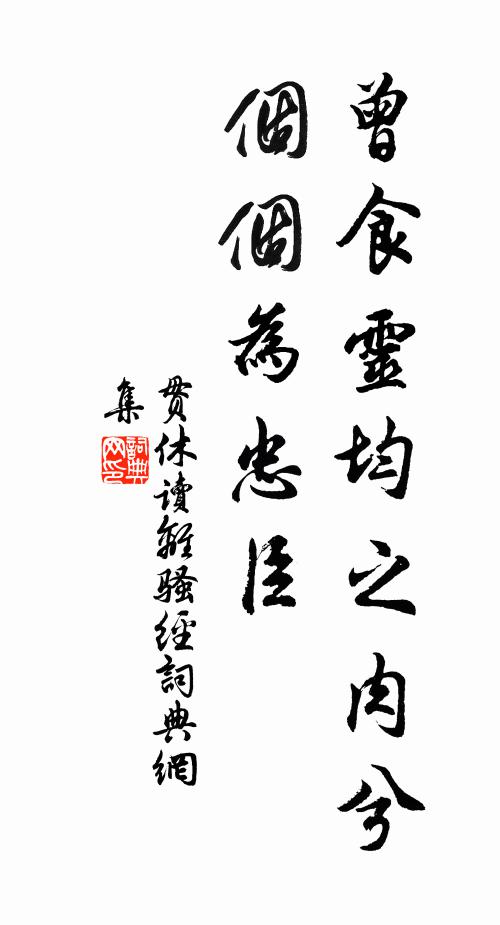 曾食靈均之肉兮
個個為忠臣
貫休讀離騷經詞典網
集
詞典網印